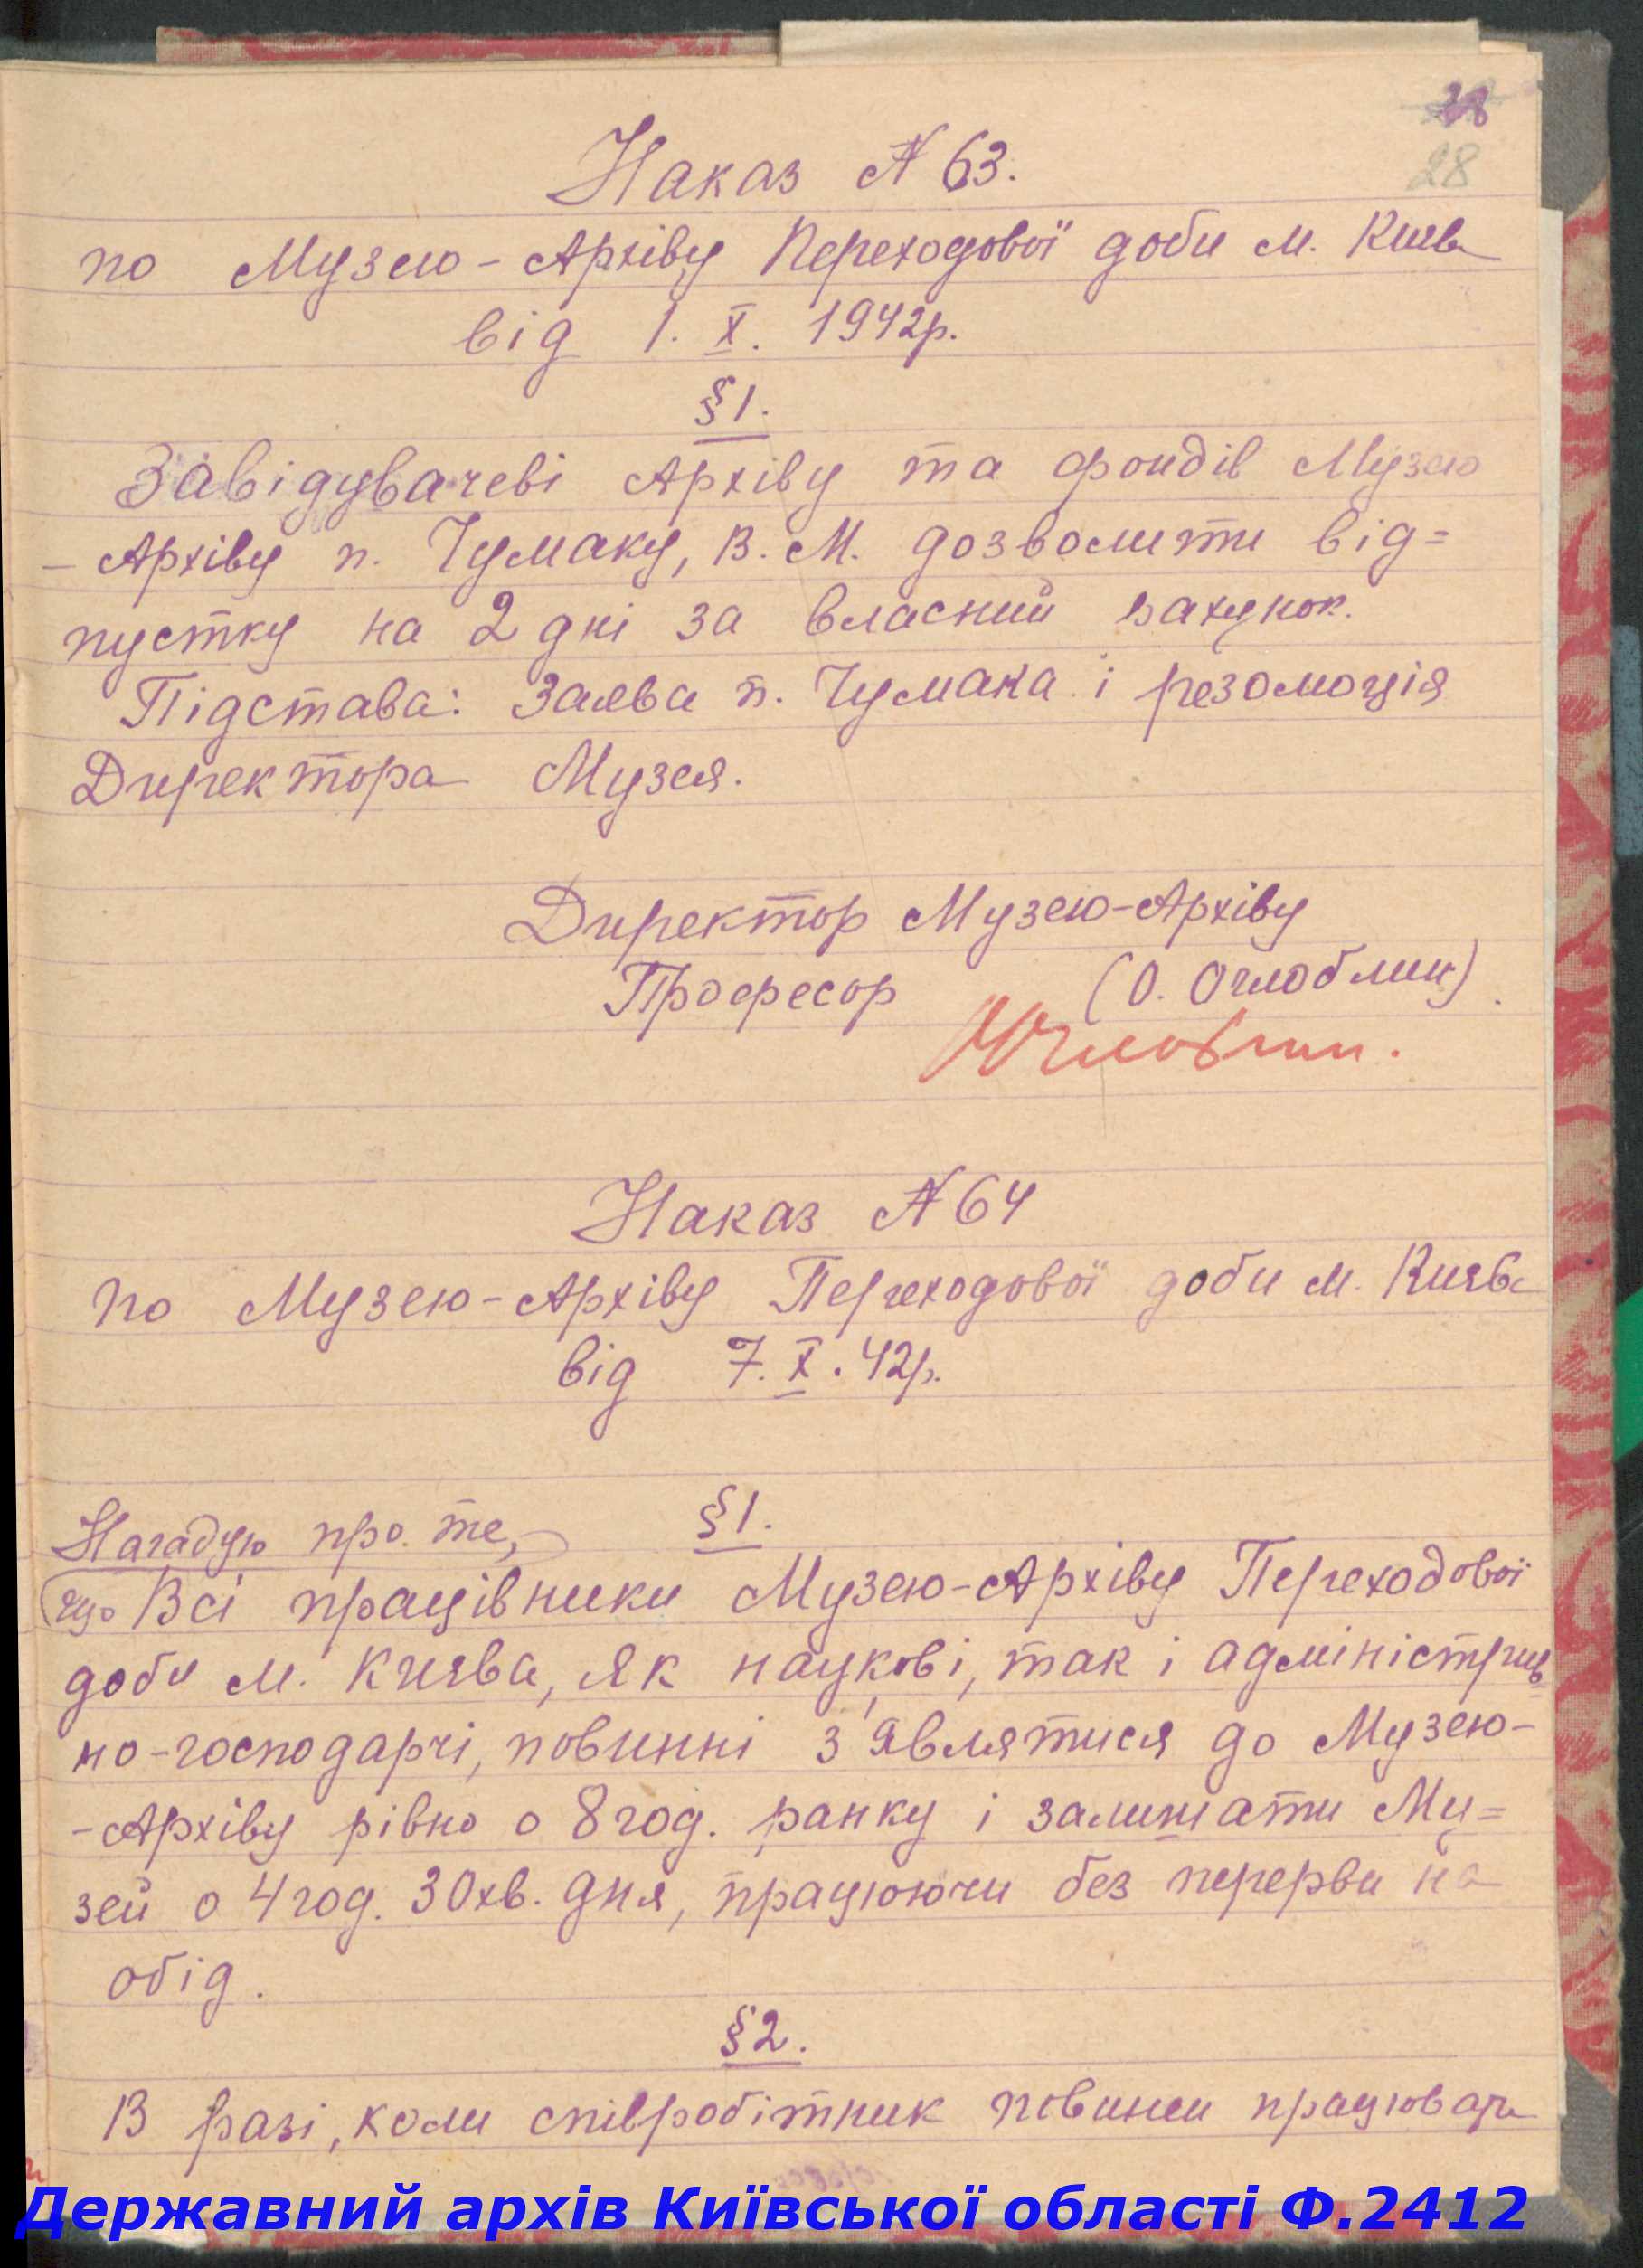 28
Наказ № 63.
по Музею-Архіву Переходової доби м. Києва
від 1. X. 1942р.
§1.
Завідувачеві Архіву та фондів Музею
-Архіву п. Чумаку, В. М. дозволити від=
пустку на 2 дні за власний рахунок.
Підстава: Заява п. Чумака і резолюція
Директора Музея.
Директор Музею-Архіву
Професор (О. Оглоблин)
Наказ № 64
по Музею-Архіву Переходової доби м. Києва
від 7. X. 42р.
§1.
Нагадую про те,
що Всі працівники Музею-Архіву Переходової
доби м. Києва, як наукові, так і адміністратив
но-господарчі, повинні з'являтися до Музею-
-Архіву рівно о 8 год. ранку і залишати Му=
зей о 4 год. 30 хв. дня, працюючи без перерви на
обід.
§2.
В разі, коли співробітник повинен працювати
Державний архів Київської області Ф.2412